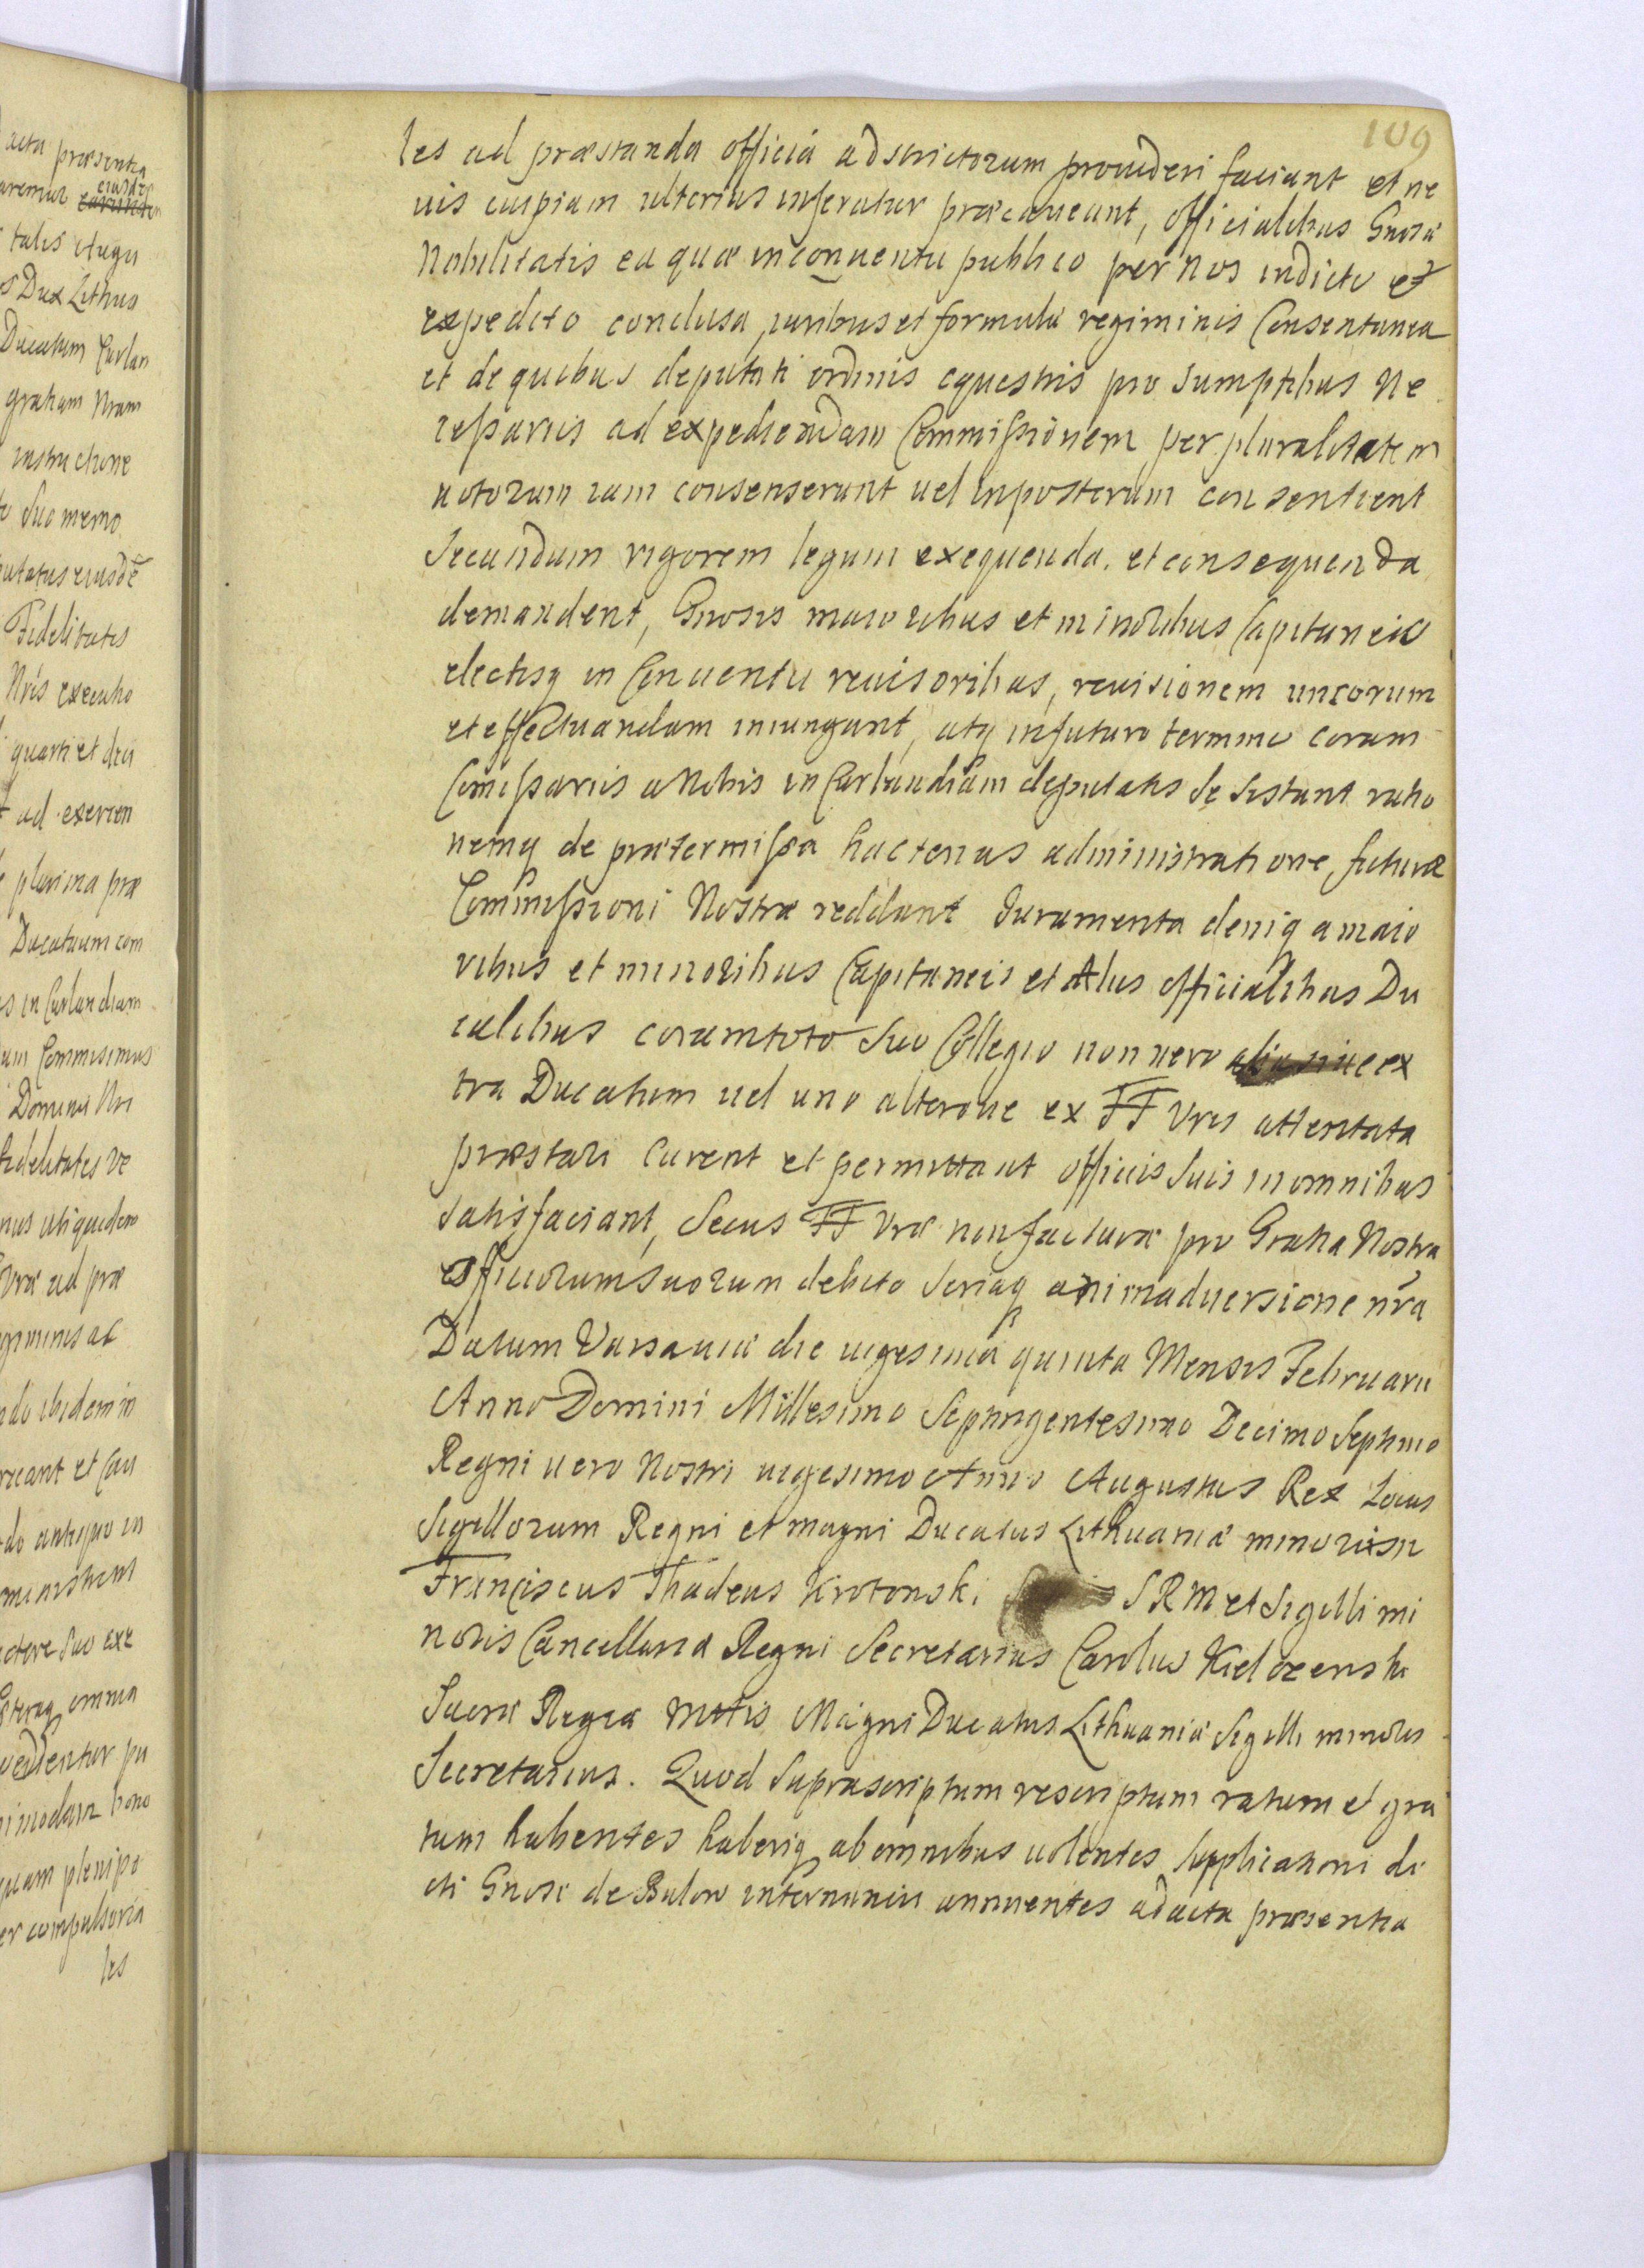 109
les ad præstanda officia adstrictorum prouideri faciant et ne
uis cuipiam ulterius inferatur præcaueant, officialibus Gnosæ
Nobilitatis ea quæ in conuentu publico per nos indicto et
expedito conclusa, iuribus et formulæ regiminis Consentanea
et de quibus deputati ordinis equestris pro sumptibus Ne
cessariis ad expediendam Commissionem per pluralitatem
uotorum iam consenserunt uel inposterum consentient
Secundum rigorem legum exequenda. et consequenda
demandent, Gnosis maioribus et minoribus Capitaneis
electisq in Conuentu reuisoribus, reuisionem uncorum
et effectuandam iniungant, utq in futuro termino coram
Comissariis a Nobis in Curlandiam deputatis se sistant ratio
nemq de prætermissa hactenus administratione, futuræ
Commissioni Nostræ reddant Juramenta deniq a maio
ribus et minoribus Capitaneis et Aliis officialibus Du
calibus coram toto suo Collegio non uero siue ex
tra Ducatum uel uno alteroue ex FF Vris attentata
præstari Curent et permittant officiis suis in omnibus
satisfaciant, Secus FF Vræ non facturæ pro Gratia Nostra
officiorum suorum debito seriaq animaduersione nra
Datum Varsauiæ die uigesima quinta Mensis Februarii
Anno Domini Millesimo Septingentesimo Decimo Septimo
Regni uero Nostri uigesimo Anno Augustus Rex Locus
Sigillorum Regni et magni Ducatus Lithuaniæ minorisq
Franciscus Thadeus Krotonski SRM et Sigilli mi
noris Cancellariæ Regni Secretarius Carolus Kielczenski
Sacræ Regiæ Mttis Magni Ducatus Lithuaniæ Sigilli minoris
Secretarius. Quod Suprascriptum rescriptum ratum et gra
tum habentes haberiq ab omnibus uolentes Supplicationi di
cti Gnosi de Bulow internuncii annuentes ad acta præsentia